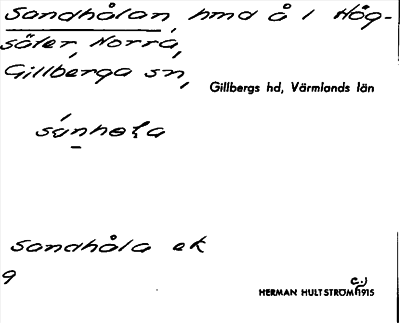 Sandhålan, hmd å i Hög-
säter, Norra,
Gillberga sn,
Gillbergs hd, Värmlands län
sánhola
Sandhåla ek
9
HERMAN HULTSTRÖM c:a 1915